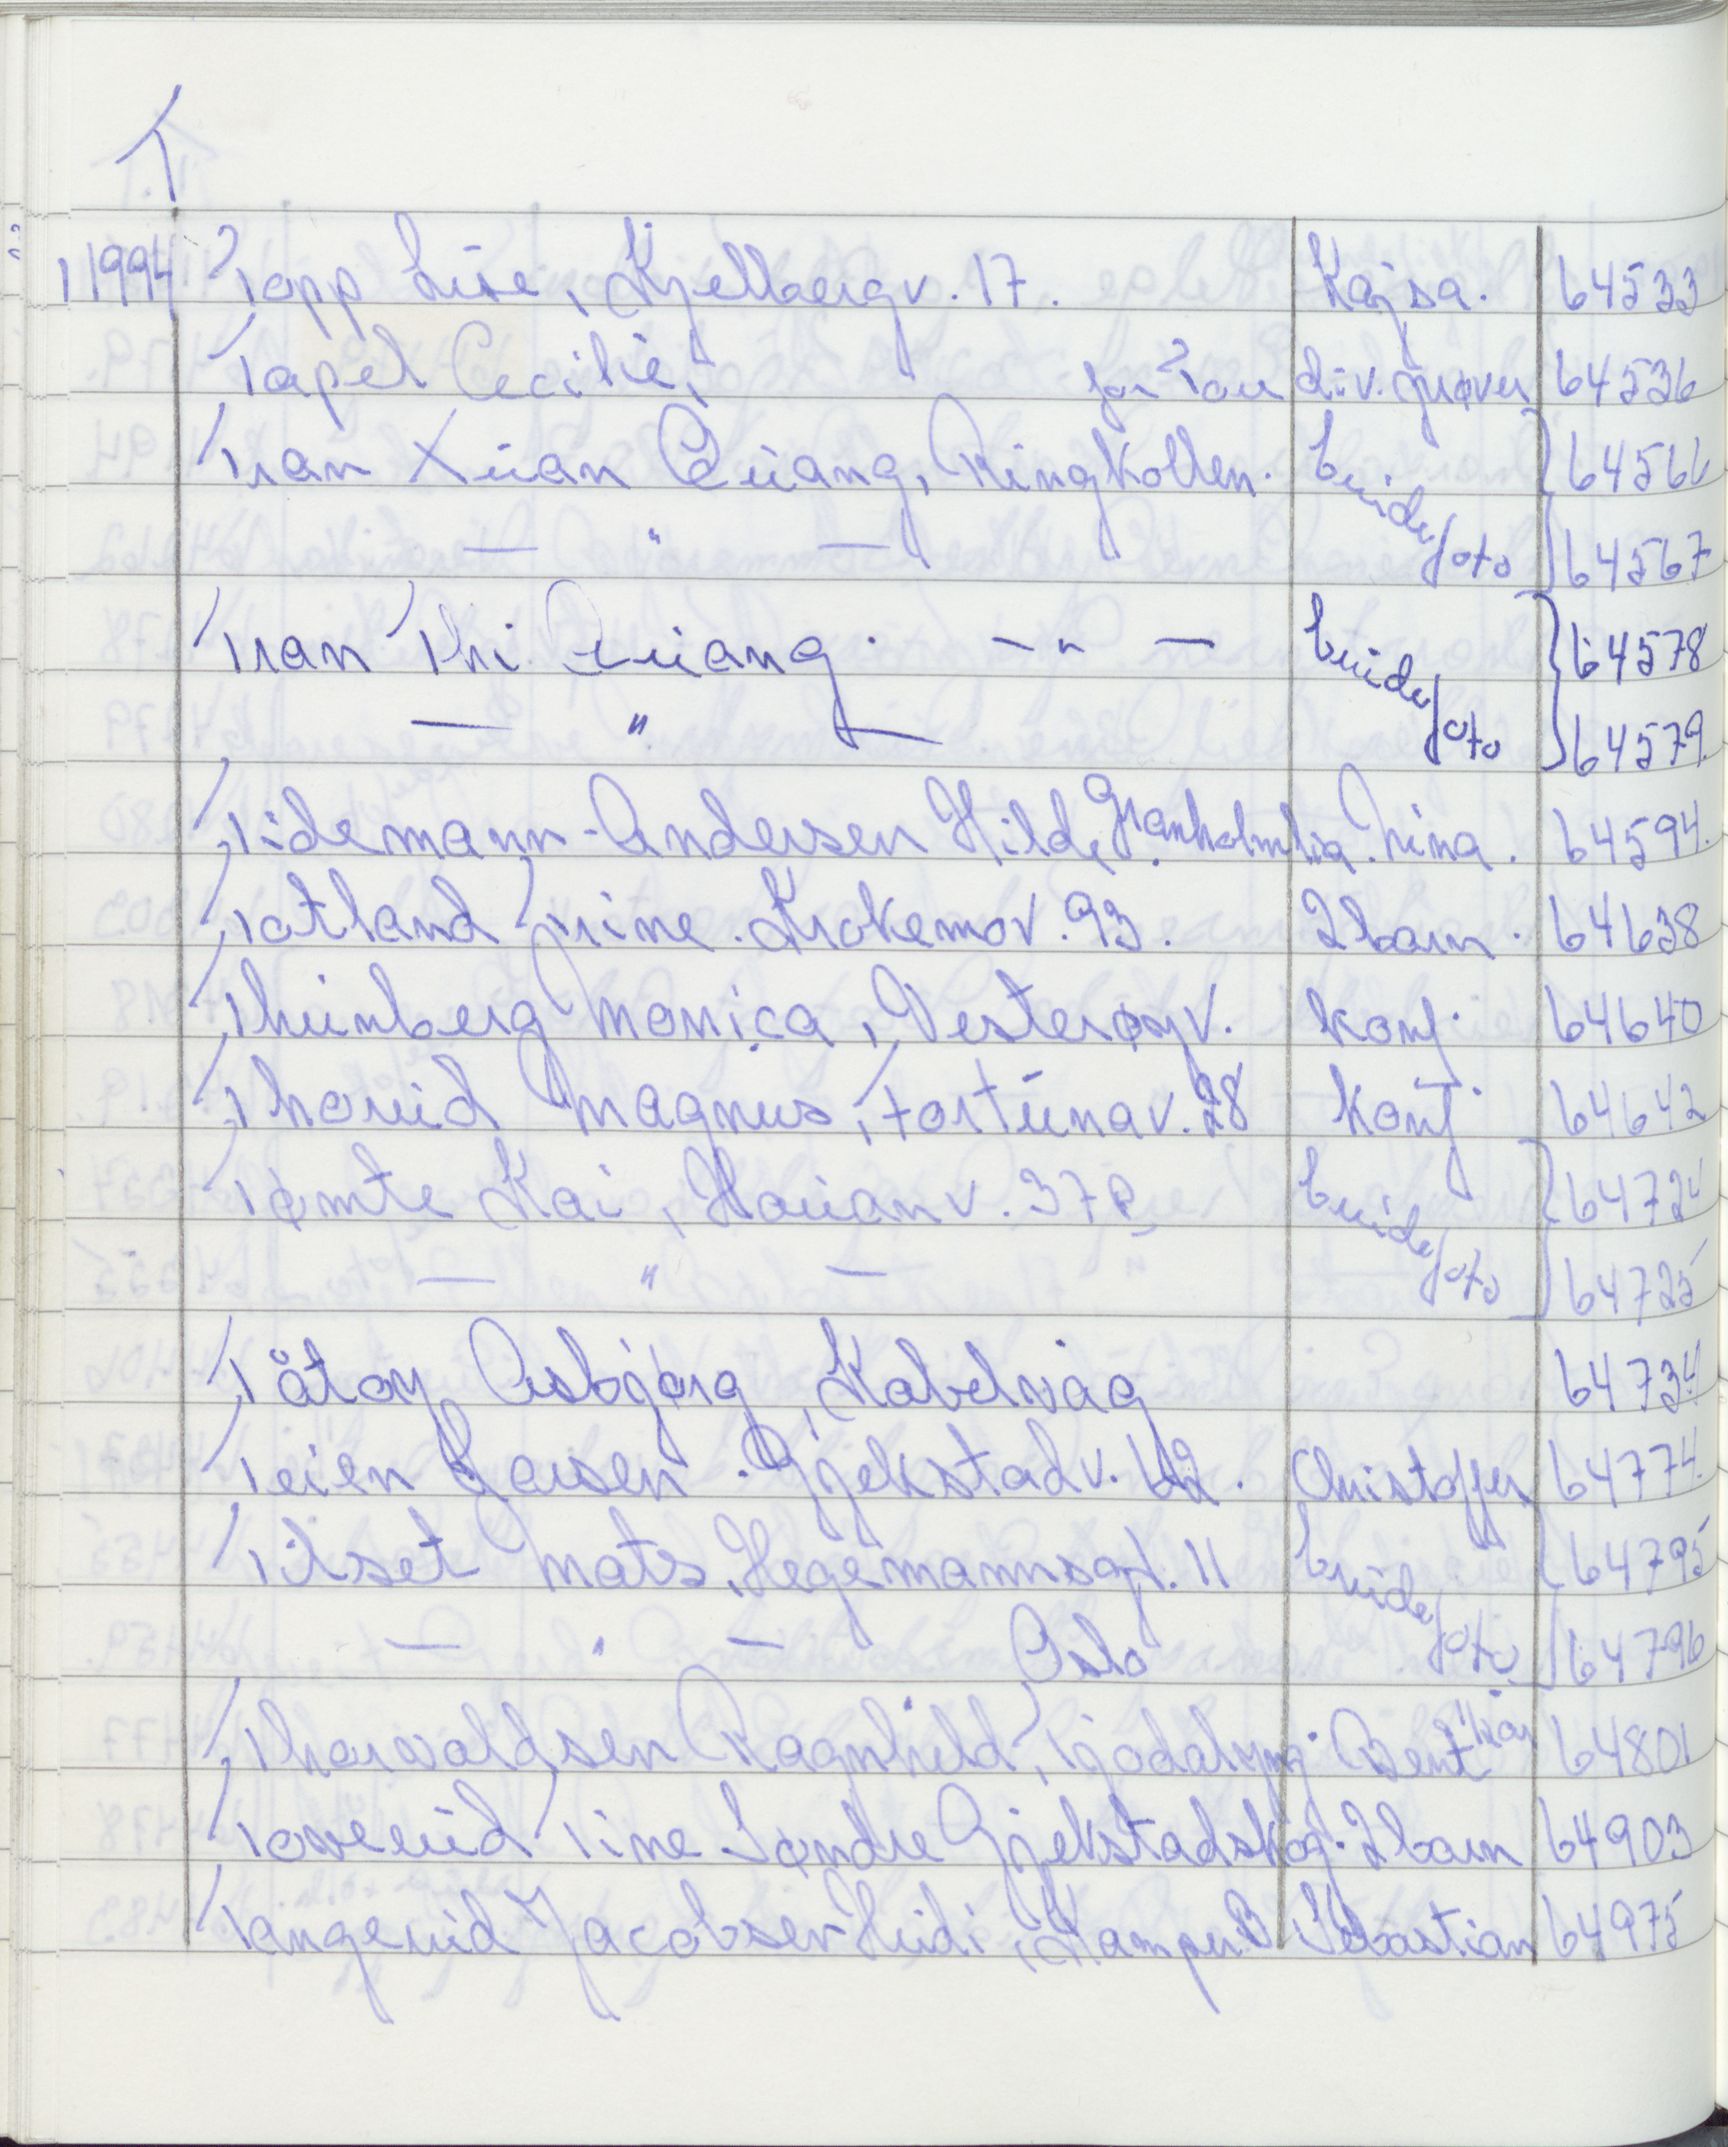 T
1994 Topp Lise, Kjellbergv. 17. Kajsa. 64533
Tapel Cecilie, for Tove div. prøver 64536
Tran Xuan Quang, Ringkollen. brude 64566
— " — foto 64567
Tran Thi Quang. — " — brude 64578
— " — foto 64579.
Tidemann-Andersen Hilde, Granholmlia. Nina. 64594.
Totland Trine. Krokemov. 93. 2 barn. 64638
Thunberg Monica, Vesterøyv. konf. 64640
Thorud Magnus, Fortunav. 28 konf. 64642
Tømte Kai, Hauanv. 37B brude 64724
— " — foto 64725
Tåtøy Asbjørg, Kabelvåg 64734.
Teien Gausen. Gjekstadv. 62. Christoffer 64774.
Tilset Mats, Hegermannsgt. 11 brude 64795
— " — Oslo foto 64796
Thorvaldsen Ragnhild, Tjodalyng. Bent 64801
Toverud Tine Søndre Gjekstadskog. 2 barn 64903
Tangerud Jacobsen Heidi, Sebastian 64975